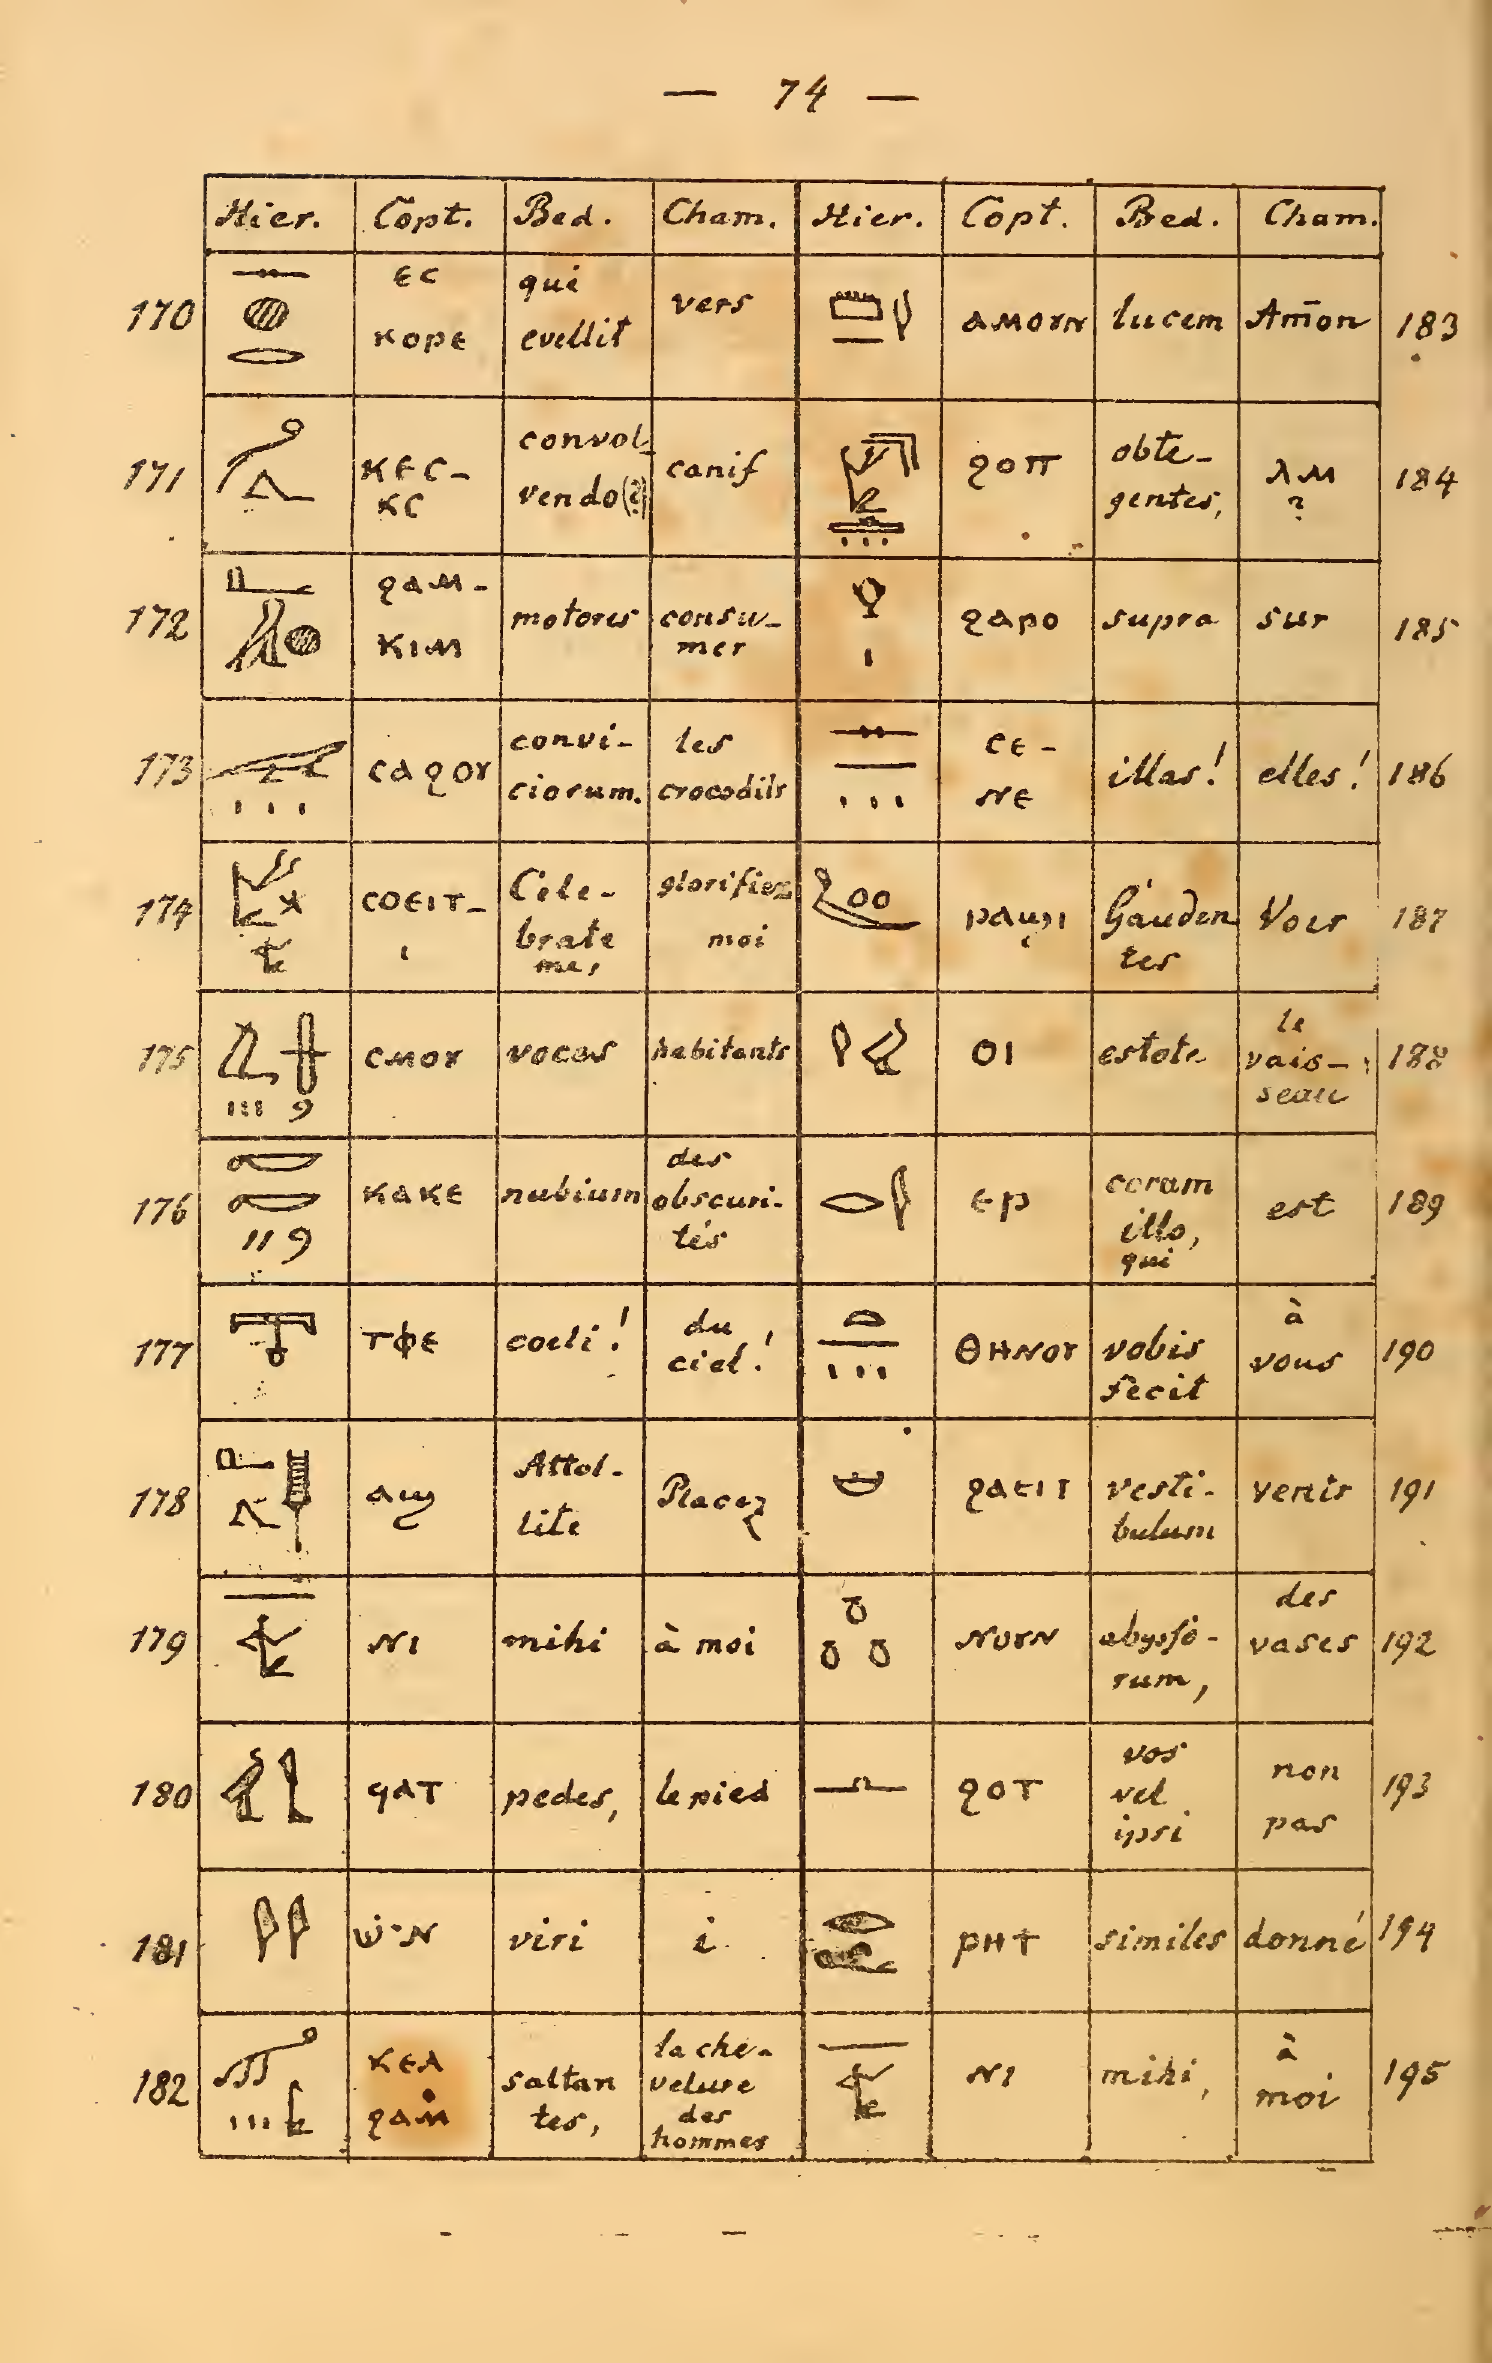 — 74 —
Hier. Copt. Bed. Cham. Hier. Copt. Bed. Cham.
170 ⲉⲥ ⲕⲟⲣⲉ qui evellit vers ⲁⲙⲟⲩⲛ lucem Am̄on 183
171 ⲕⲉⲥ- ⲕⲥ convol- vendo(?) canif ϩⲟⲡ obte- gentes, ⲗⲙ ? 184
172 ϩⲁⲙ- ⲕⲓⲙ motores consu- mer ϩⲁⲣⲟ supra sur 185
173 ⲥⲁϩⲟⲩ convi- ciorum. les crocodils ⲥⲉ- ⲛⲉ illas! elles! 186
174 ⲥⲟⲉⲓⲧ- ⲓ Cele- brate me, glorifiez moi ⲣⲁϣⲓ Gauden tes Voir 187
175 ⲥⲙⲟⲩ voces habitants ⲟⲓ estote le vais- seau 188
176 ⲕⲁⲕⲉ nubium des obscuri- tés ⲉⲣ coram illo, qui est 189
177 ⲧⲫⲉ coeli! du ciel! ⲑⲏⲛⲟⲩ vobis fecit à vous 190
178 ⲁϣ Attol- lite Placez ϩⲁⲉⲓⲧ vesti- bulum venir 191
179 ⲛⲓ mihi à moi ⲛⲟⲩⲛ abysso- rum, des vases 192
180 ϥⲁⲧ pedes, le pied ϩⲟⲧ vos vel ipsi non pas 193
181 viri i ⲣⲏϯ similes donné 194
182 ⲕⲉⲗ ϩⲁⲙ saltan tes, la che- velure des hommes ⲛⲓ mihi, à moi 195